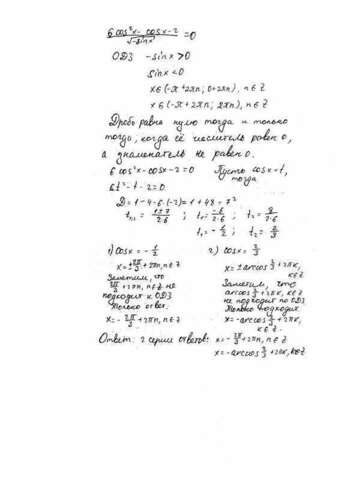 6cos²x - cosx - 2 / √-sinx = 0
ОДЗ -sinx > 0
sinx < 0
x∈(-π+2πn; 0+2πn), n∈Z
x∈(-π+2πn; 2πn), n∈Z
Дробь равна нулю тогда и только
тогда, когда её числитель равен 0,
а знаменатель не равен 0.
6cos²x - cosx - 2 = 0 Пусть cosx = t,
тогда
6t² - t - 2 = 0.
D = 1 - 4·6·(-2) = 1 + 48 = 7²
t₁,₂ = (1±7)/(2·6) ; t₁ = -6/(2·6) ; t₂ = 8/(2·6)
t₁ = -1/2 ; t₂ = 2/3
1) cosx = -1/2
x = ±2π/3 + 2πn, n∈Z
Заметим, что
2π/3 + 2πn, n∈Z не
подходит к ОДЗ
Только ответ.
x = -2π/3 + 2πn, n∈Z
2) cosx = 2/3
x = ±arccos 2/3 + 2πk,
k∈Z
Заметим, что
arccos 2/3 + 2πk, k∈Z
не подходит по ОДЗ
Только подходит
x = -arccos 2/3 + 2πk,
k∈Z.
Ответ: 2 серии ответов: x = -2π/3 + 2πn, n∈Z
x = -arccos 2/3 + 2πk, k∈Z